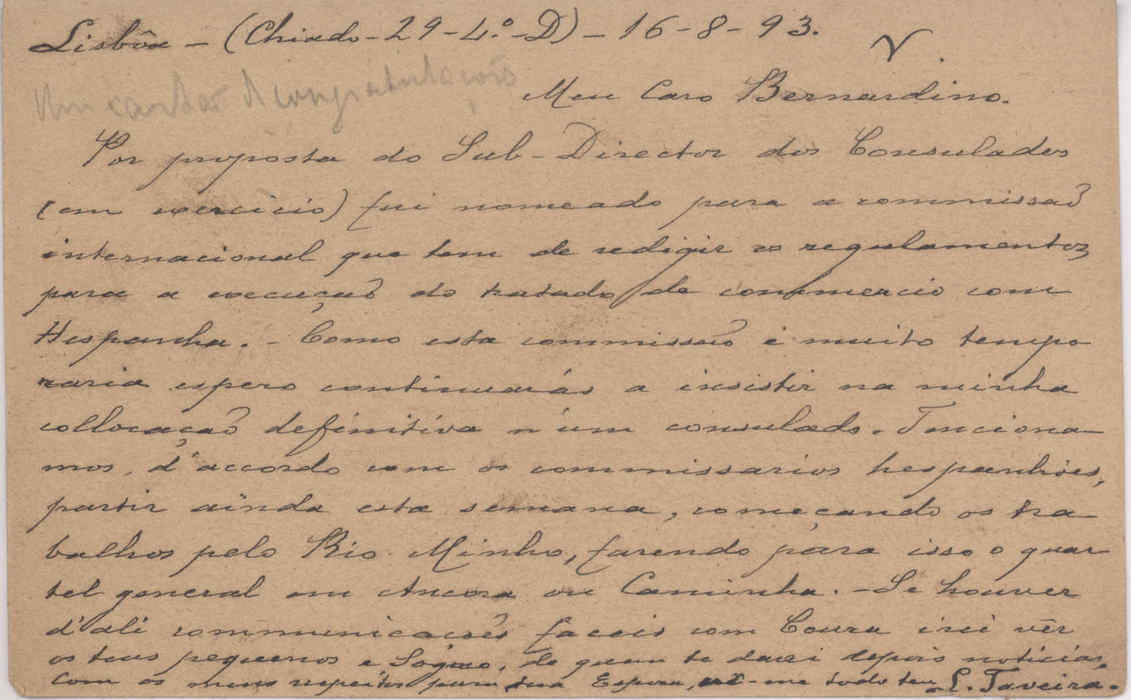 Lisbôa - (Chiado - 29 - 4.º - D) - 16 - 8 - 93.
Um cartão de congratulações
Meu Caro Bernardino.
Por proposta do Sub-Director dos Consulados
(em exercicio) fui nomeado para a commissão
internacional que tem de redigir os regulamentos
para a execução do tratado de commercio com
Hespanha. - Como esta commissão é muito tempo
raria espero continuarás a insistir na minha
collocação definitiva n'um consulado. Tenciona-
mos, d'accordo com os commissarios hespanhóes,
partir ainda esta semana, começando os tra
balhos pelo Rio Minho, fazendo para isso o quar
tel general em Ancora ou Caminha. - Se houver
d'ali communicações faceis com Coura irei vêr
os teus pequenos e Sogro, de quem te darei depois noticias,
Com os meus respeitos para tua Esposa, me todo teu L. Taveira.